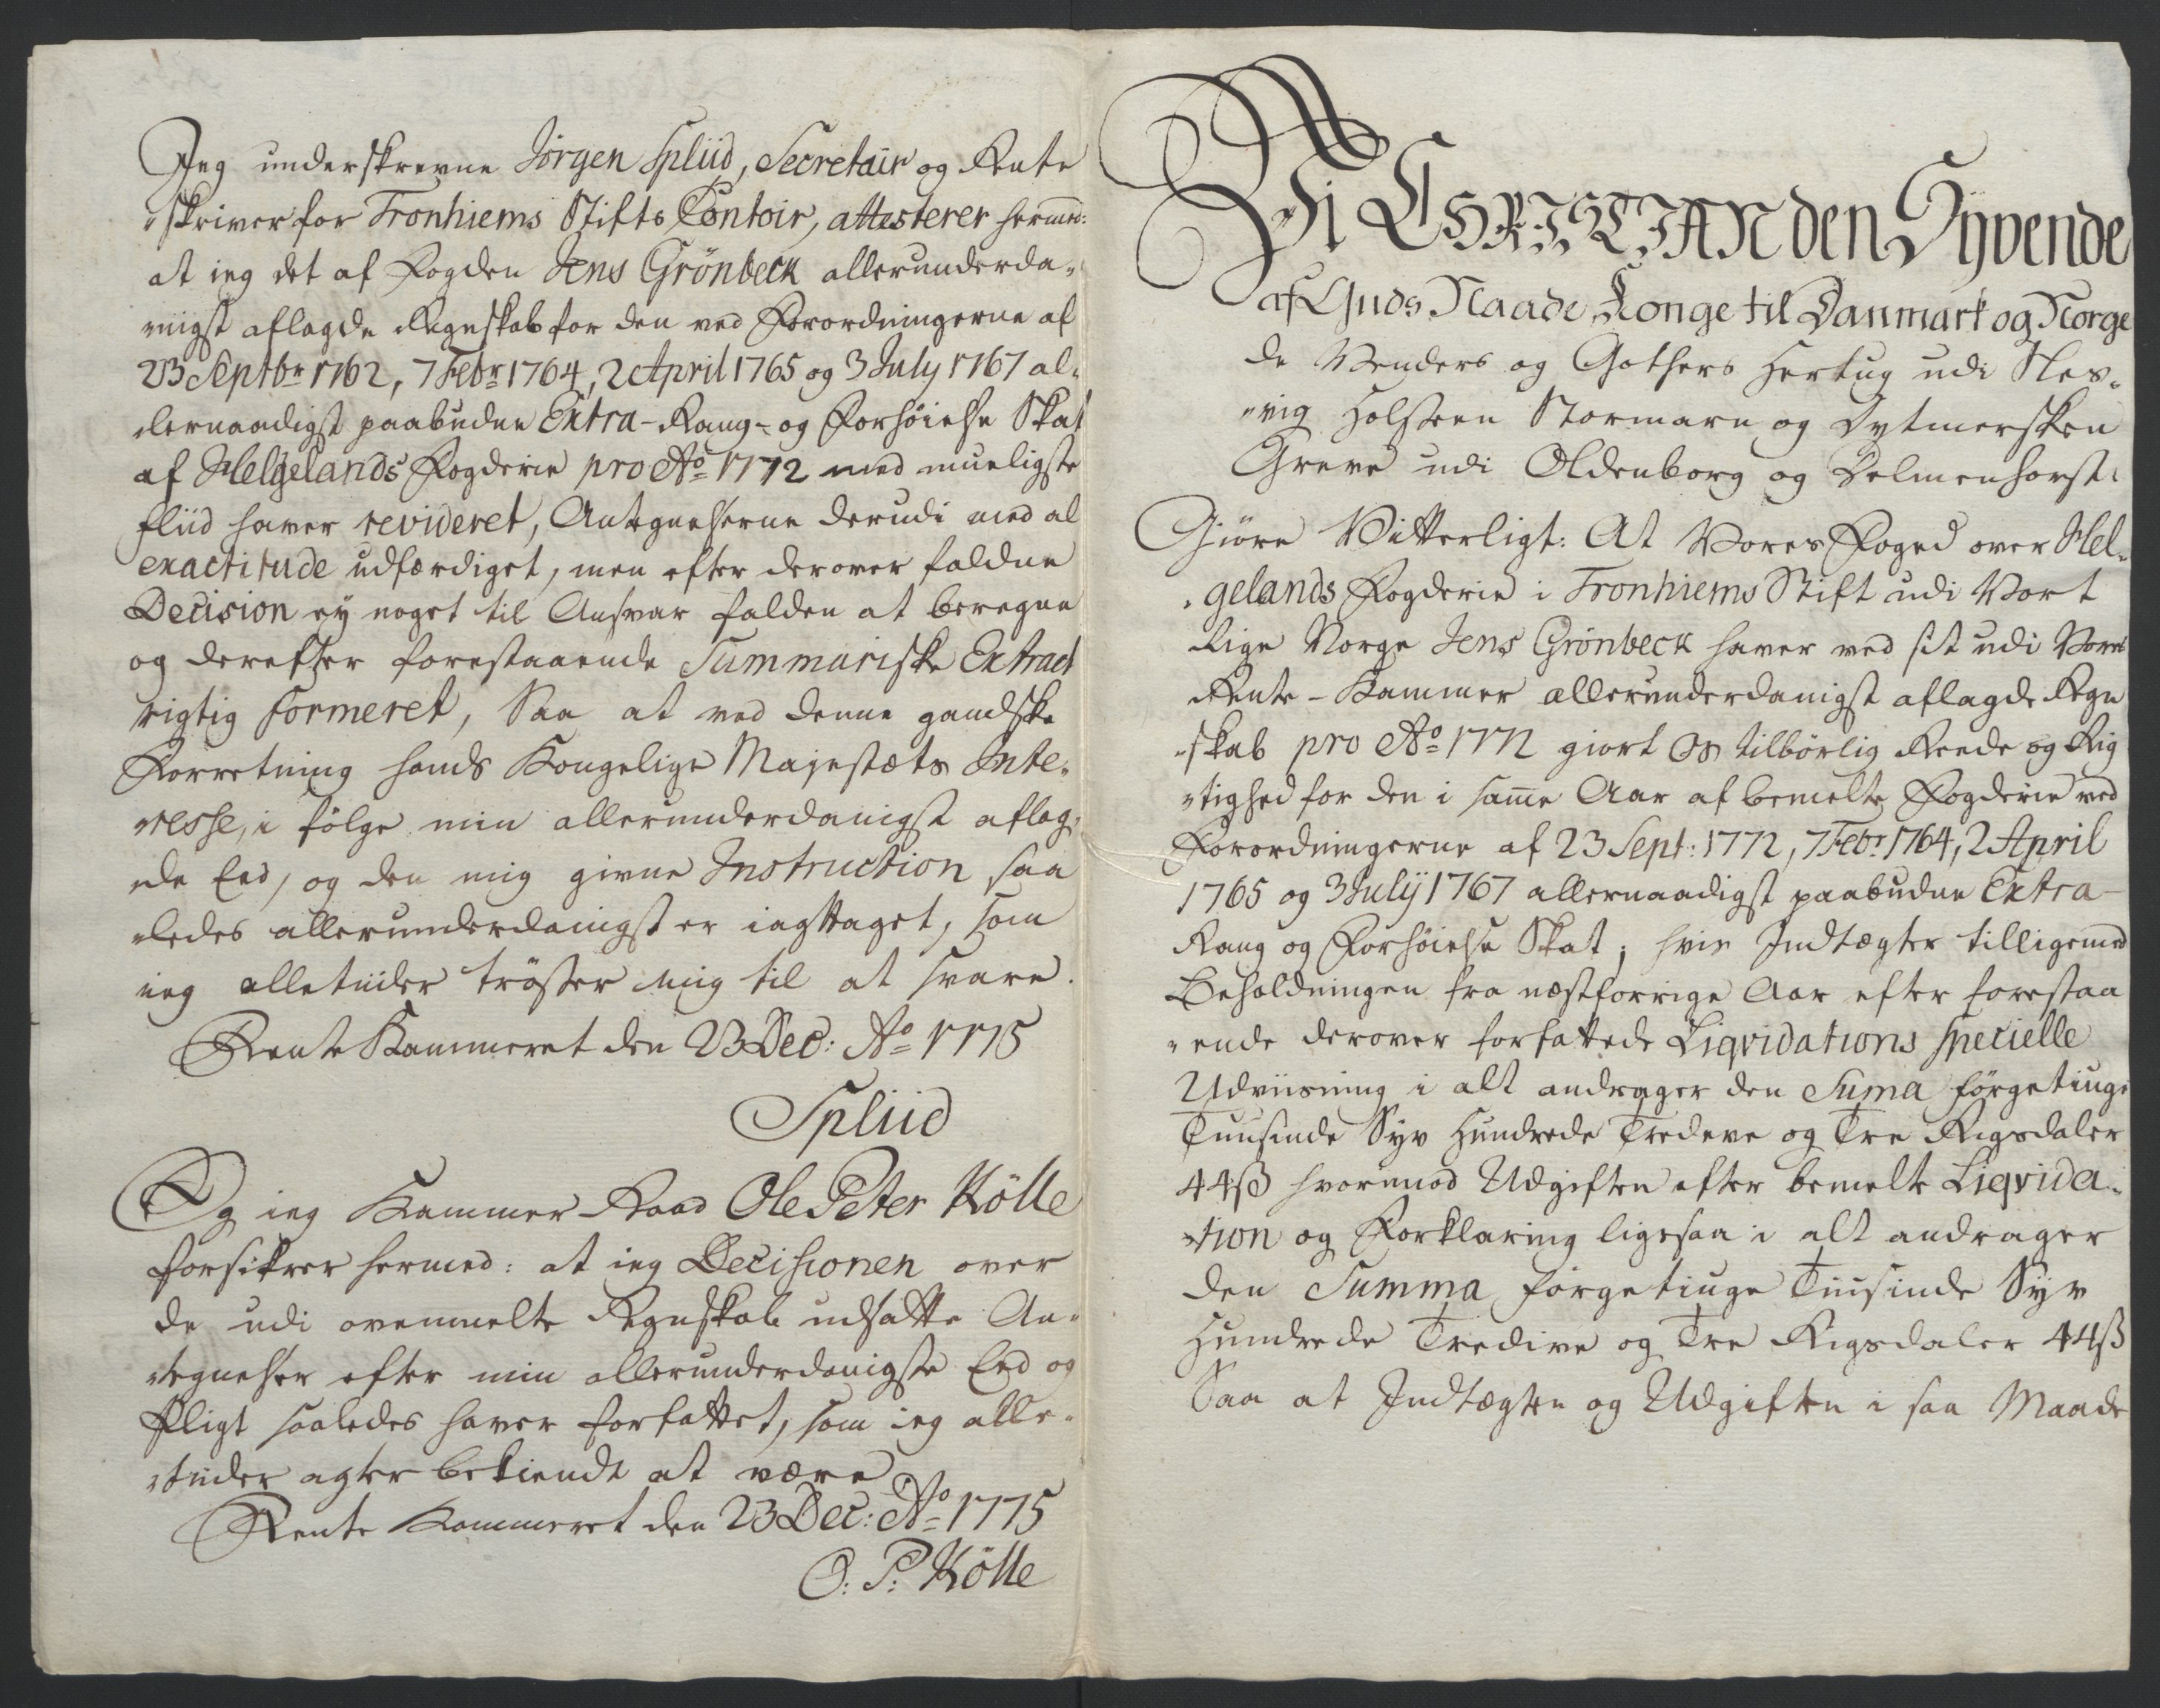 Jeg underskrevne Jörgen Spliid, Secretair og Rente
„skriver for Tronhiems Stifts Contoir, attesterer hermed:
at ieg det af Fogden Jens Grönbeck allerunderda„
„nigst aflagde Regnskab for den ved Forordningerne af
23 Septbr 1762, 7 Febr 1764, 2 April 1765 og 3 July 1767 al„
„lernaadigst paabudne Extra-Rang- og Forhöielse Skat
af Helgelands Fogderie pro Ao 1772 med mueligste
fliid haver revideret, Antegnelserne derudi med al
exactitude udfærdiget, men efter derover faldne
Decision ey noget til Ansvar falden at beregne
og derefter forestaaende Summariske Extract
rigtig formeret, Saa at ved denne gandske
Forretning hands Kongelige Majestæts Inte„
„resse, i fölge min allerunderdanigst aflag„
„de Eed, og den mig givne Instruction saa
„ledes allerunderdanigst er iagttaget, som
ieg alletiider tröster mig til at svare.
Rente Kammeret den 23 Dec: Ao 1775
Spliid
Og ieg Kammer Raad Ole Peter Kölle
forsikrer hermed: at ieg Decisionen over
de udi ovenmelte Regnskab udsatte An„
„tegnelser efter min allerunderdanigste Eed og
Pligt saaledes haver forfattet, som ieg alle„
„tiider agter bekiendt at være
Rente Kammeret den 23 Dec: Ao 1775
O: P: Kölle
Vi CHRISTIAN den Syvende
af Guds Naade Konge til Danmark og Norge
de Venders og Gothers Hertug udi Sles„
„vig Holsteen Stormarn og Dytmersken
Greve udi Oldenborg og Delmenhorst:
Giöre Vitterligt: At Vores Foged over Hel„
„gelands Fogderie i Tronhiems Stift udi Vort
Rige Norge Jens Grönbeck haver ved sit udi Vores
Rente-Kammer allerunderdanigst aflagde Regn
„skab pro Ao 1772 giort Os tilbörlig Reede og Rig
„tighed for den i samme Aar af bemelte Fogderie ved
Forordningerne af 23 Sept: 1772, 7 Febr 1764, 2 April
1765 og 3 Julij 1767 allernaadigst paabudne Extra-
Rang og Forhöielse Skat; hvis Indtægter tilligemed
Beholdningen fra næstforrige Aar efter forestaa
„ende derover forfattede Liqvidations specielle
Udviisning i alt andrager den Suma förgetiuge
Tuusinde Syv Hundrede Tredeve og Tre Rigsdaler
44ß hvorimod Udgiften efter bemelte Liqvida„
„tion og Forklaring ligesaa i alt andrager
den Summa förgetiuge Tuusinde Syv
Hundrede Tredive og Tre Rigsdaler 44ß
Saa at Indtægten og Udgiften i saa Maade